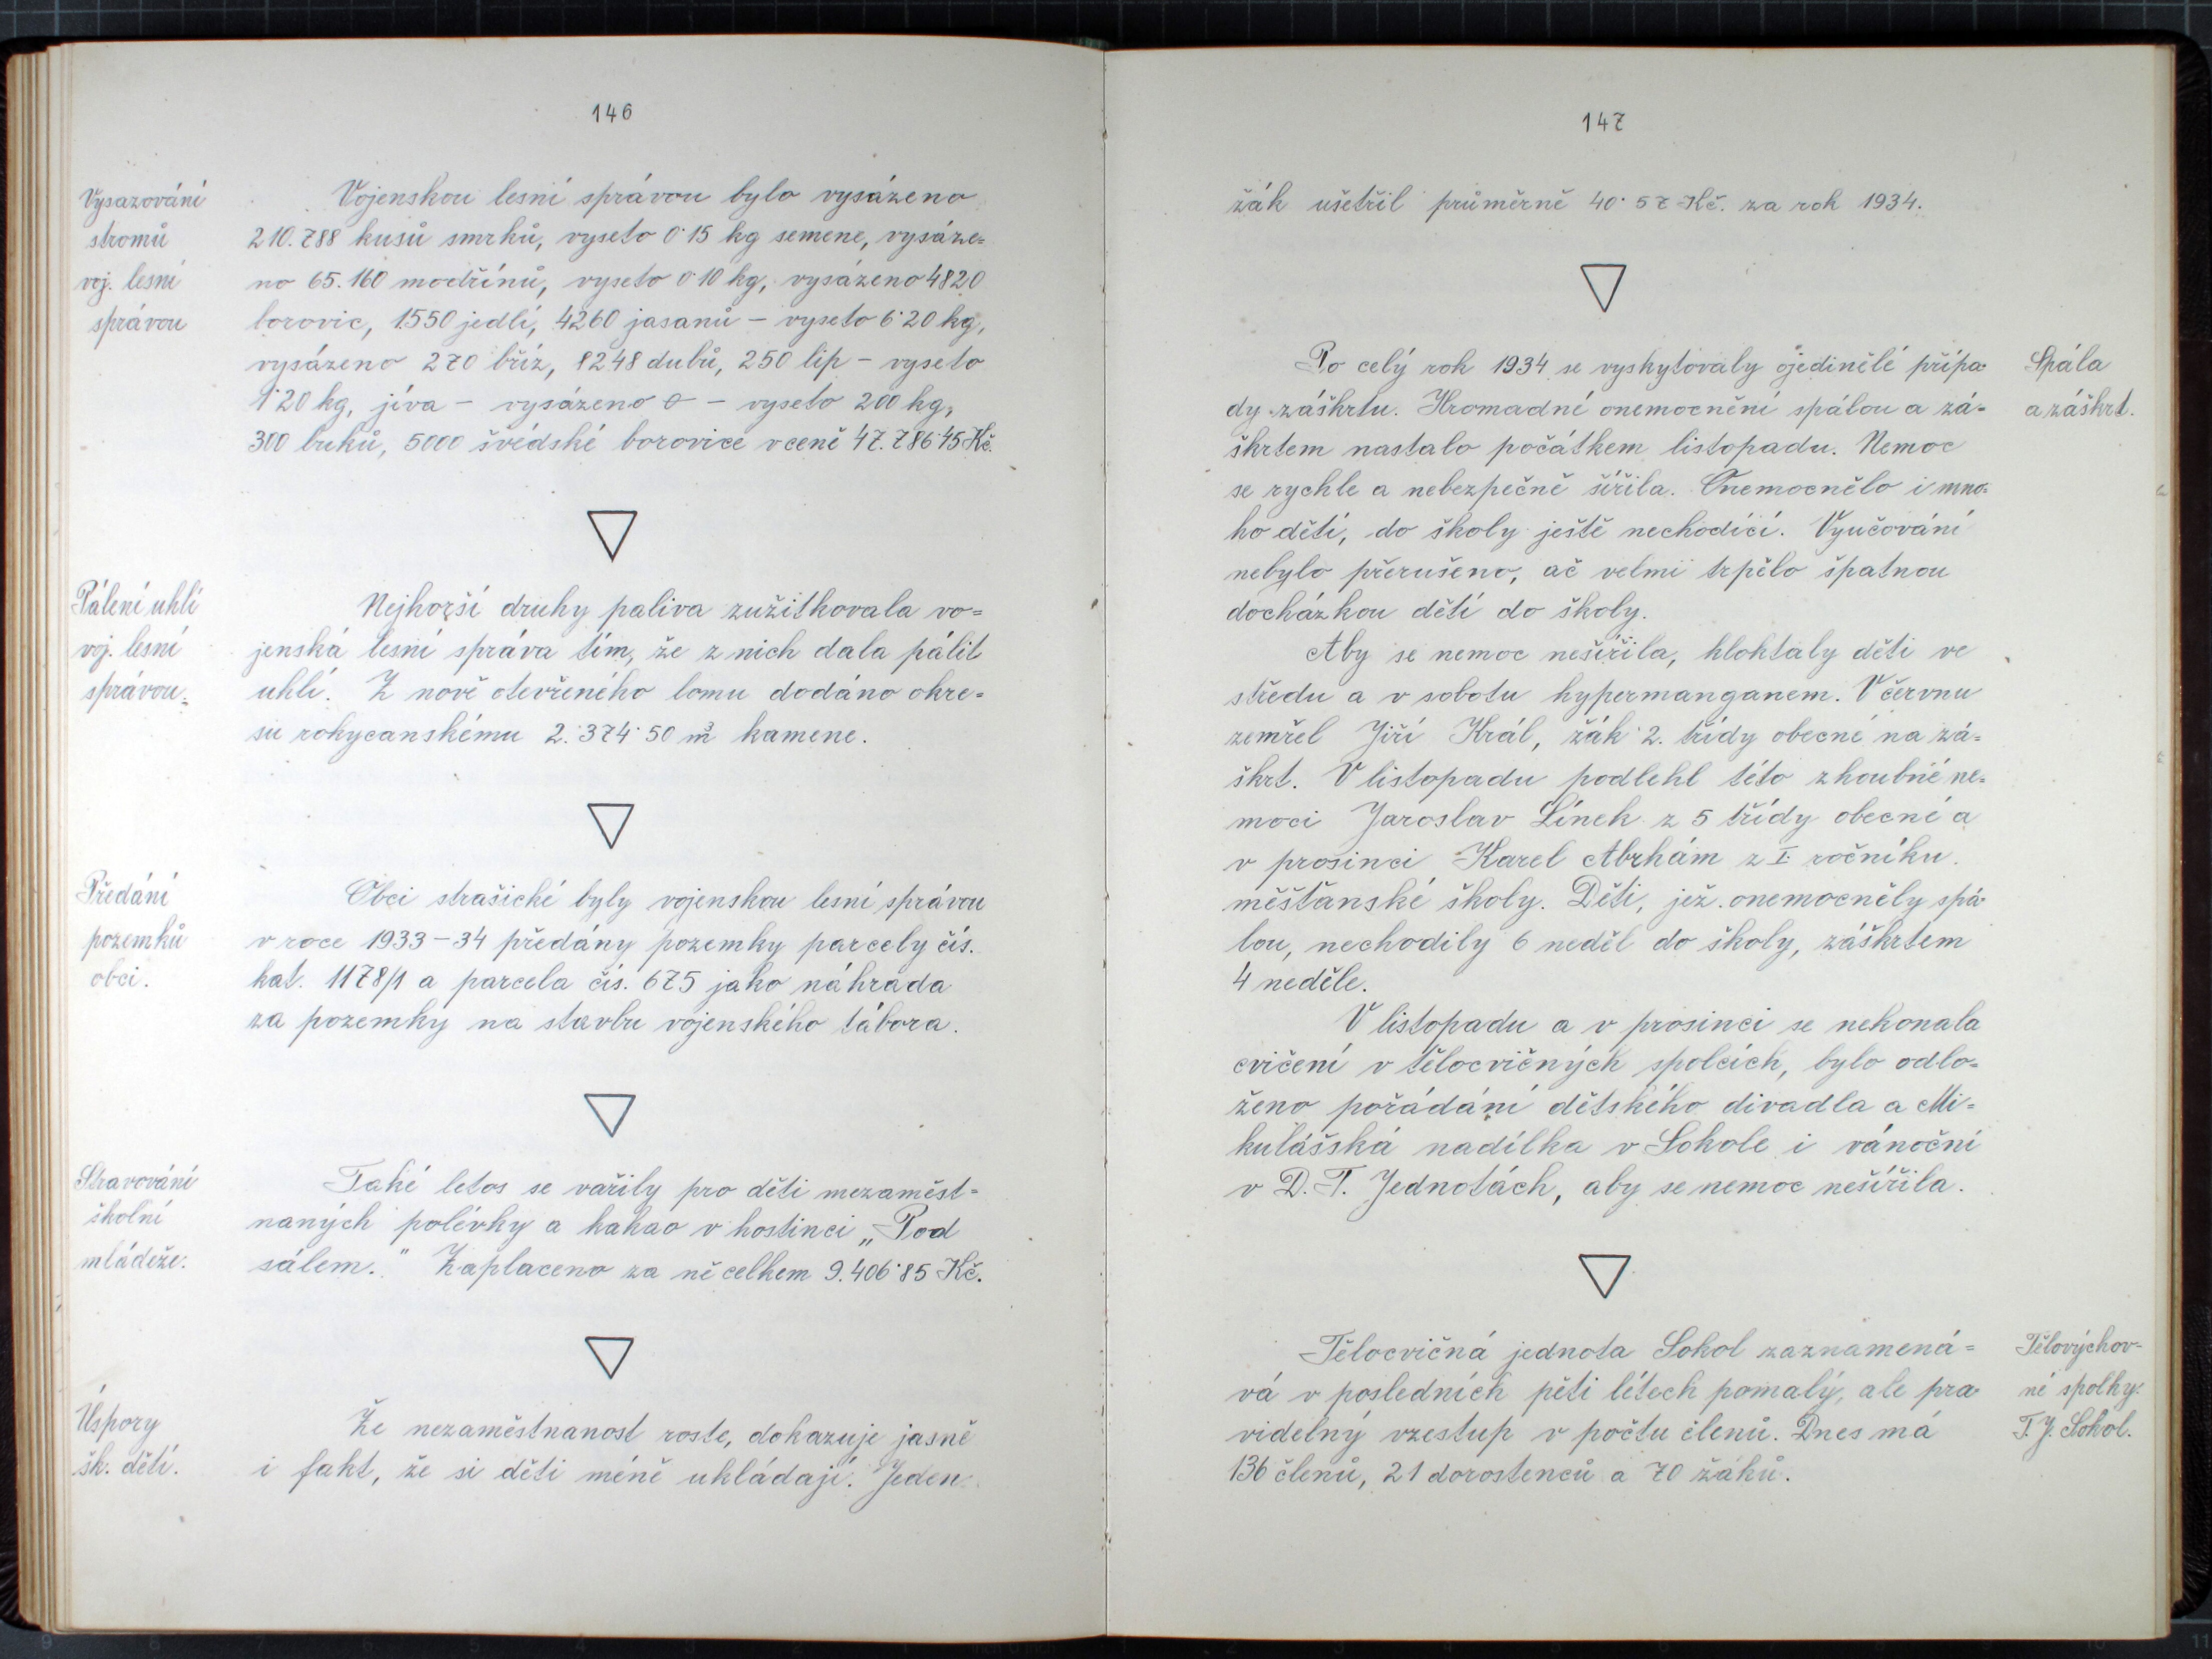 146
Vysazování
stromů
voj. lesní
správou
Vojenskou lesní správou bylo vysázeno
210.788 kusů smrků, vyseto 0˙15 kg semene, vysáze=
no 65.160 modřínů, vyseto 0˙10 kg, vysázeno 4820
borovic, 1550 jedlí, 4260 jasanů – vyseto 6˙20 kg,
vysázeno 270 bříz, 8248 dubů, 250 lip – vyseto
1˙20 kg, jíva – vysázeno 0 – vyseto 200 kg,
300 buků, 5000 švédské borovice v ceně 47.786˙45 Kč.
Pálení uhlí
voj. lesní
správou.
Nejhorší druhy paliva zužitkovala vo=
jenská lesní správa tím, že z nich dala pálit
uhlí. Z nově otevřeného lomu dodáno okre=
su rokycanskému 2.374˙50 m³ kamene.
Předání
pozemků
obci.
Obci strašické byly vojenskou lesní správou
v roce 1933–34 předány pozemky parcely čís.
kat. 1178/1 a parcela čís. 675 jako náhrada
za pozemky na stavbu vojenského tábora.
Stravování
školní
mládeže.
Také letos se vařily pro děti mezaměst=
naných polévky a kakao v hostinci „Pod
sálem." Zaplaceno za ně celkem 9.406˙85 Kč.
Úspory
šk. dětí.
Že nezaměstnanost roste, dokazuje jasně
i fakt, že si děti méně ukládají. Jeden
147
žák ušetřil průměrně 40˙57 Kč. za rok 1934.
Spála
a záškrt.
Po celý rok 1934 se vyskytovaly ojedinělé přípa=
dy záškrtu. Hromadné onemocnění spálou a zá=
škrtem nastalo počátkem listopadu. Nemoc
se rychle a nebezpečně šířila. Onemocnělo i mno=
ho dětí, do školy ještě nechodící. Vyučování
nebylo přerušeno, ač velmi trpělo špatnou
docházkou dětí do školy.
Aby se nemoc nešířila, kloktaly děti ve
středu a v sobotu hypermanganem. V červnu
zemřel Jiří Král, žák 2. třídy obecné na zá=
škrt. V listopadu podlehl této zhoubné ne=
moci Jaroslav Línek z 5 třídy obecné a
v prosinci Karel Abrhám z I. ročníku
měšťanské školy. Děti, jež onemocněly spá=
lou, nechodily 6 neděl do školy, záškrtem
4 neděle.
V listopadu a v prosinci se nekonala
cvičení v tělocvičných spolcích, bylo odlo=
ženo pořádání dětského divadla a Mi=
kulášská nadílka v Sokole i vánoční
v D. T. Jednotách, aby se nemoc nešířila.
Tělovýchov-
né spolky:
T. J. Sokol.
Tělocvičná jednota Sokol zaznamená=
vá v posledních pěti létech pomalý, ale pra=
videlný vzestup v počtu členů. Dnes má
136 členů, 21 dorostenců a 70 žáků.